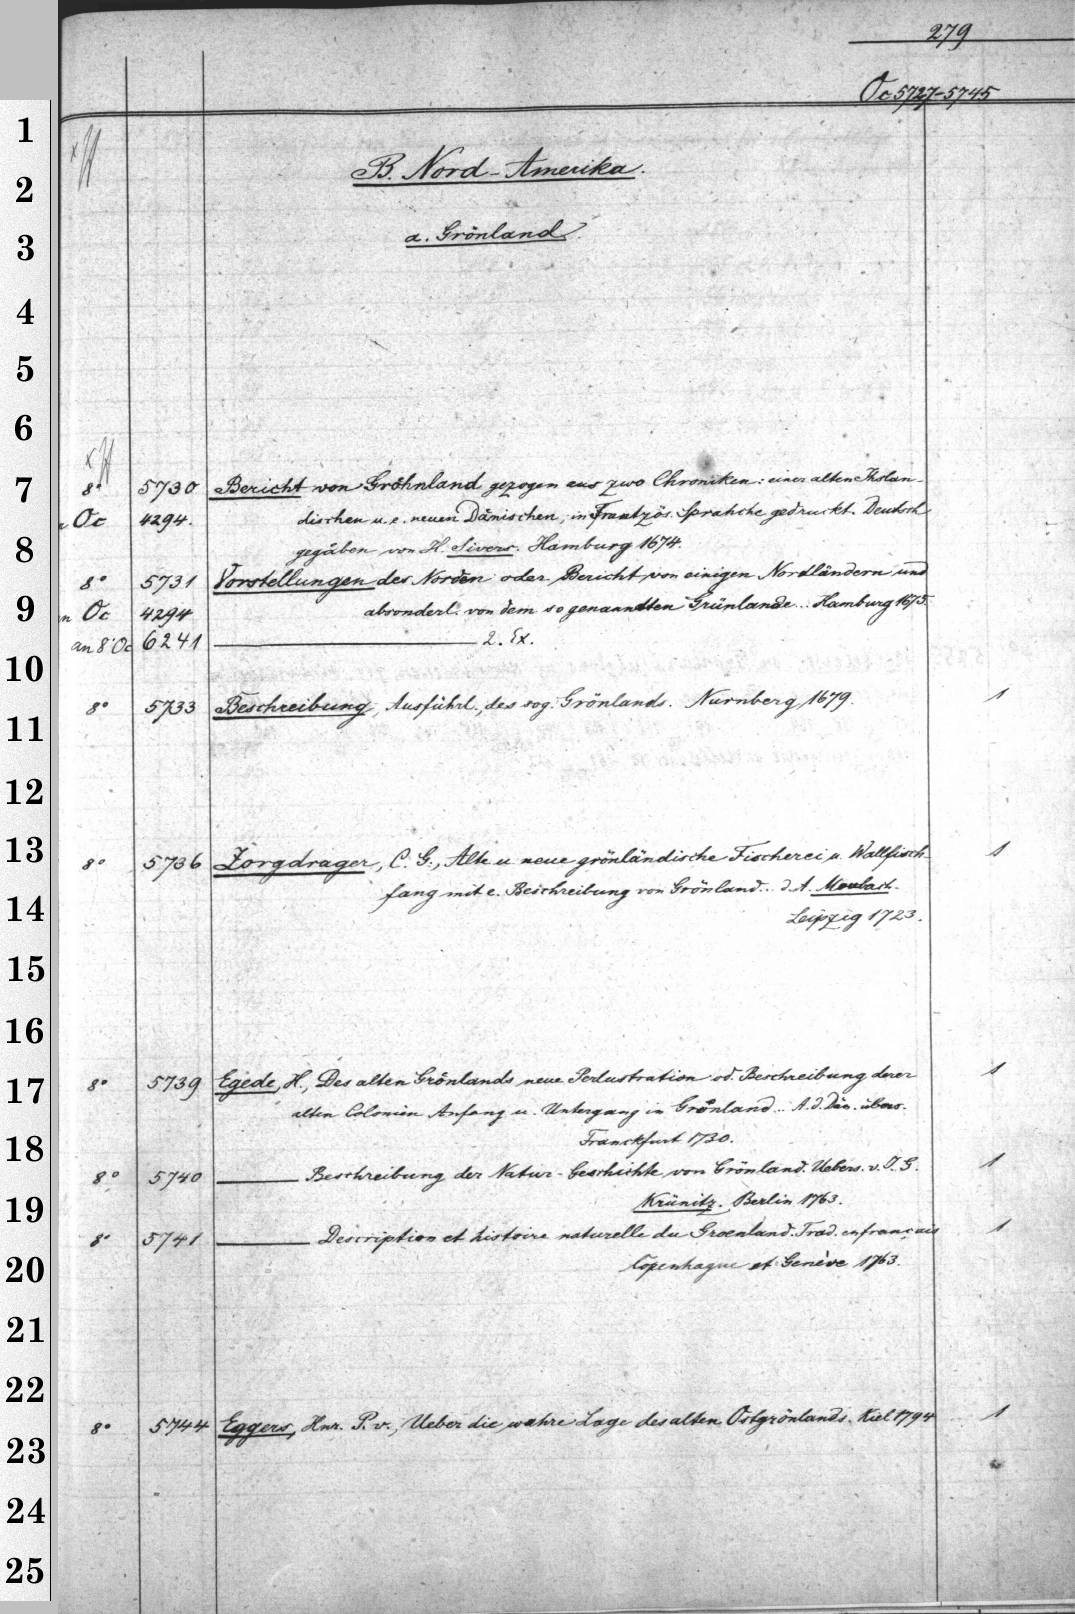 279
Oc 5727-5745
1
2
3
4
5
6
7
8
9
10
11
12
13
14
15
16
17
18
19
20
21
22
23
24
25
B. Nord-Amerika.
a. Grönland.
8° 5730 Bericht von Gröhnland gezogen aus zwo Chroniken: einer alten Ihslän-
Oc 4294. dischen u. e. neuen Dänischen, in Frantzös. Sprahche gedruckt. Deutsch
gegäben von H. Sivers. Hamburg 1674.
8° 5731 Vorstellungen des Norden oder Bericht von einigen Nordländern und
Oc 4294 absonderl. von dem so genanndten Grünlande... Hamburg 1675.
an 8° Oc 6241 2. Ex.
8° 5733 Beschreibung, Ausführl., des sog. Grönlands. Nurnberg 1679. 1
8° 5736 Zorgdrager, C. G., Alte u. neue grönländische Fischerei u. Wallfisch- 1
fang mit e. Beschreibung von Grönland... d. A. Moubach.
Leipzig 1723.
8° 5739 Egede, H., Des alten Grönlands neue Perlustration od. Beschreibung derer 1
alten Colonien Anfang u. Untergang in Grönland... A. d. Dän. übers.
Franckfurt 1730.
8° 5740 Beschreibung der Natur-Geschichte von Grönland. Uebers. v. J. G. 1
Krünitz. Berlin 1763.
8° 5741 Description et histoire naturelle du Groenland. Trad. en français 1
Copenhague et Genève 1763.
8° 5744 Eggers, Hnr. P. v., Ueber die wahre Lage des alten Ostgrönlands. Kiel 1794 1